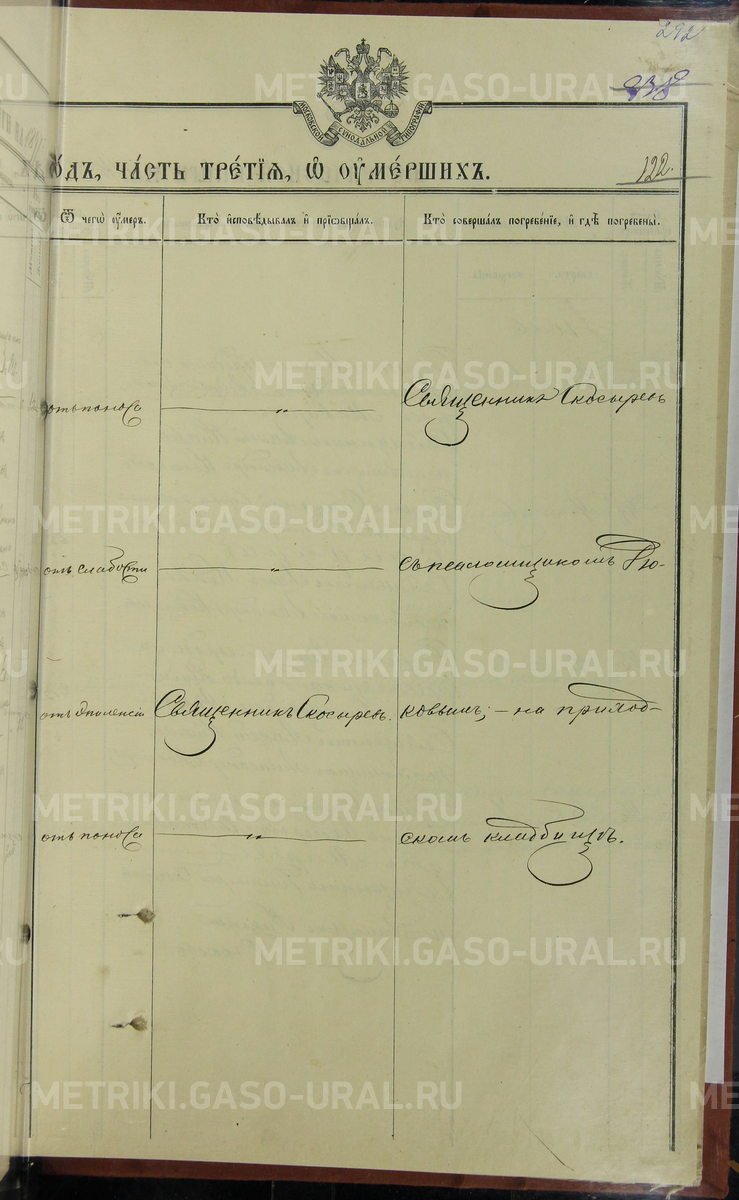 292
338
МОСКОВСКОЙ СѴНОДАЛЬНОЙ ТИПОГРАФІИ
ОДЪ, ЧА́СТЬ ТРЕ́ТІѦ, Ѽ ОУ҆МЕ́РШИХЪ.
122.
Ѿ чегѡ̀ ѹ҆́меръ.
Кто̀ и҆сповѣ́дывалъ и҆ прїѡбща́лъ.
Кто̀ соверша́лъ погребе́нїе, и҆ гдѣ̀ погребены̀.
отъ поноса
〃
Священникъ Скосыревъ
отъ слабости
〃
съ псаломщикомъ Дю-
отъ Эпилепсіи
Священникъ Скосыревъ.
ковымъ; – на приход-
отъ поноса
〃
скомъ кладбищѣ.
METRIKI.GASO-URAL.RU